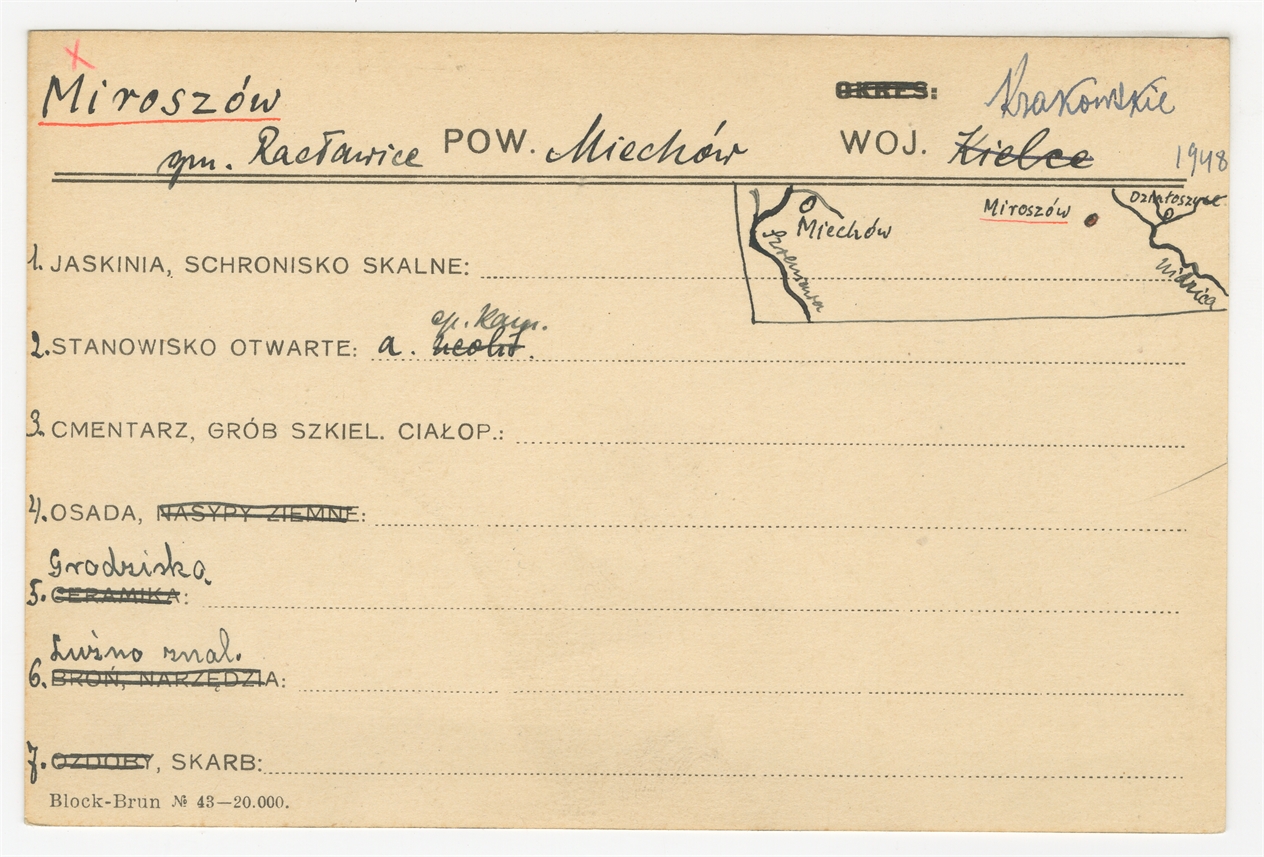 x
Miroszów OKRES: Krakowskie
gm. Racławice POW. Miechów WOJ. Kielce 1948
Miechów Miroszów Działoszyce
Szreniawa Nidzica
1. JASKINIA, SCHRONISKO SKALNE:
ep. kam.
2. STANOWISKO OTWARTE: a. neolit.
3. CMENTARZ, GRÓB SZKIEL. CIAŁOP.:
4. OSADA, NASYPY ZIEMNE:
Grodziska
5. CERAMIKA:
Luźno znal.
6. BROŃ, NARZĘDZIA:
7. OZDOBY, SKARB:
Block-Brun № 43—20.000.